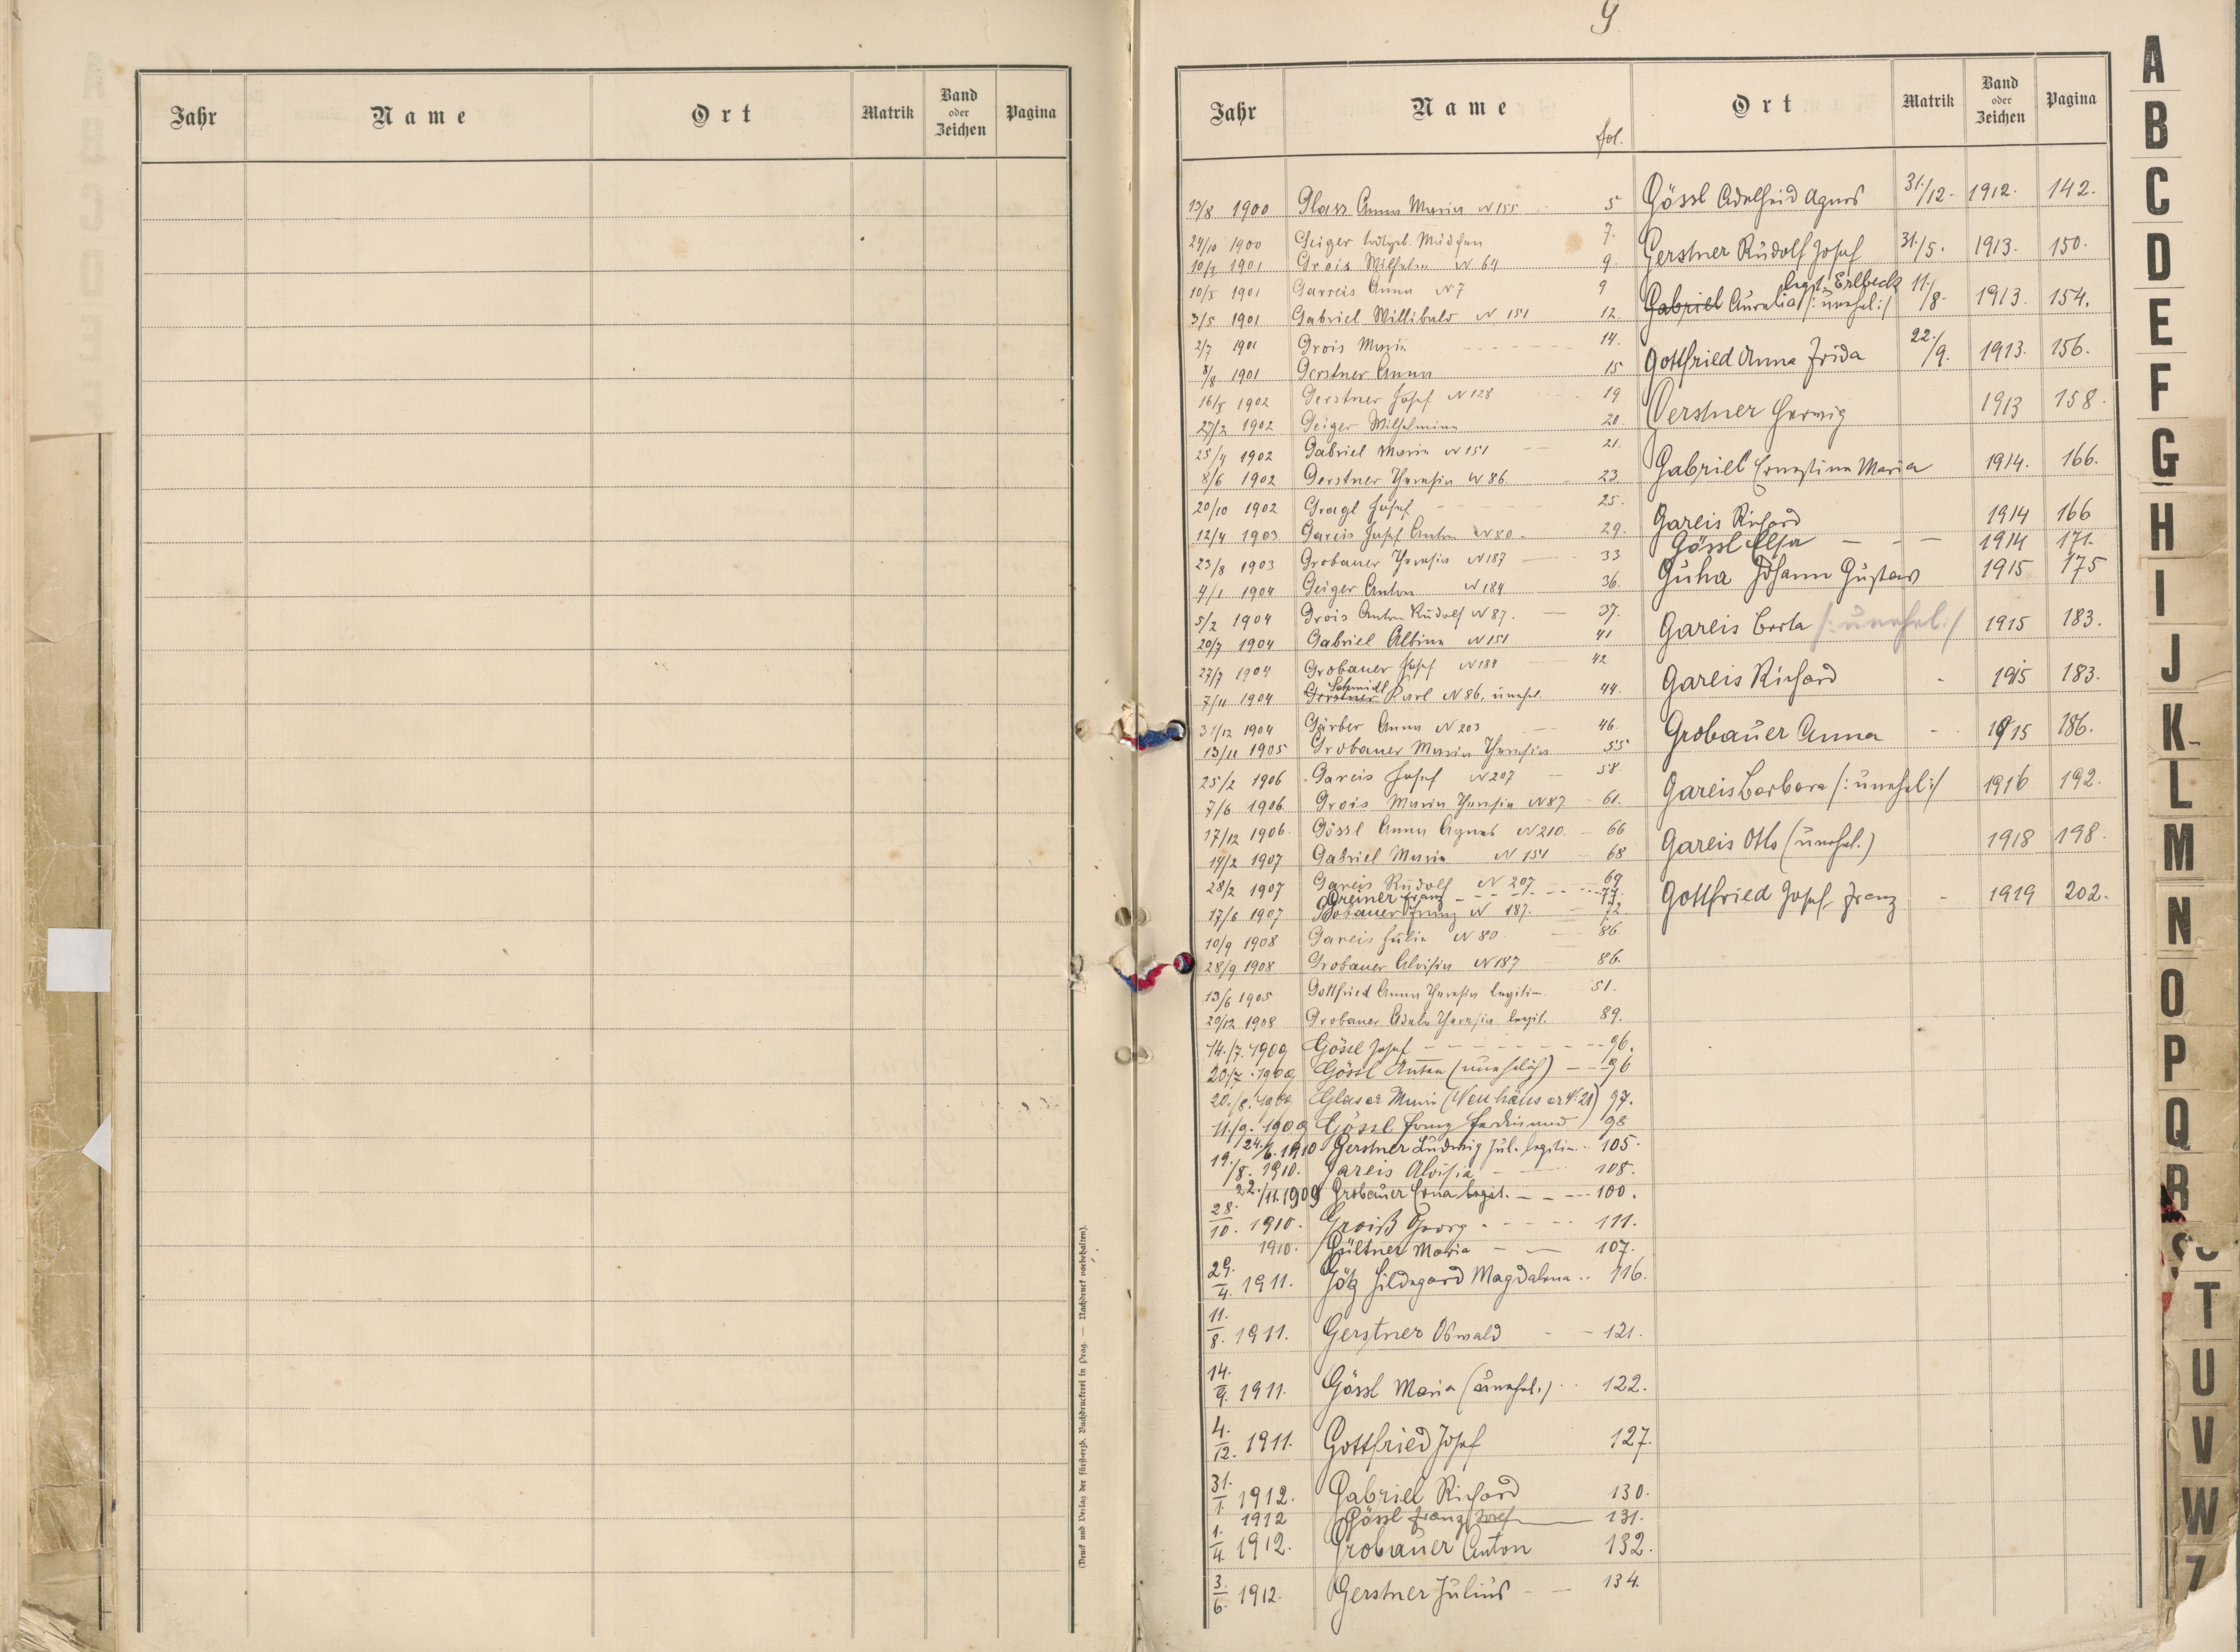 Jahr Name Ort Matrik Band oder Zeichen Pagina
(Druck und Verlag der fürst-erzb. Buchdruckerei in Prag. — Nachdruck vorbehalten).
G
Jahr Name Ort Matrik Band oder Zeichen Pagina
fol.
13/8 1900 Glass Anna Maria N 155 5
24/10 1900 Geiger todtgeb. Mädchen 7.
10/1 1901 Grois Wilhelm N 64 9.
10/5 1901 Garreis Anna N 7 9
3/5 1901 Gabriel Willibald N 151 12.
2/7 1901 Grois Maria 14.
8/8 1901 Gerstner Anna 15
16/1 1902 Gerstner Josef N 128 19
27/2 1902 Geiger Wilhelmina 20.
25/4 1902 Gabriel Maria N 151 21.
8/6 1902 Gerstner Theresia N 86 23
20/10 1902 Gragl Josef 25.
12/4 1903 Gareis Josef Anton N 80 29.
23/8 1903 Grobauer Theresia N 187 33
4/1 1904 Geiger Anton N 184 36.
5/2 1904 Grois Anton Rudolf N 87. 37.
20/7 1904 Gabriel Albina N 151 41
27/7 1904 Grobauer Josef N 184 42
Schmidl
7/11 1904 Gerstner Karl N 86, unehel. 44.
31/12 1904 Gärber Anna N 203 46.
13/11 1905 Grobauer Maria Theresia 55
25/2 1906 Gareis Josef N 207 58.
7/6 1906 Grois Maria Theresia N 87 61.
17/12 1906. Gössl Anna Agnes N 210. 66
14/2 1907 Gabriel Maria N 151 68
28/2 1907 Gareis Rudolf N 207 69
Greiner Franz 77.
17/6 1907 Grobauer Franz N 187. 72.
10/9 1908 Gareis Julia N 80 86.
28/9 1908 Grobauer Aloisia N 187 86.
13/6 1905 Gottfried Anna Theresia legitim. 51.
20/12 1908 Grobauer Adele Theresia legit. 89.
14./7. 1909 Gössl Josef 96.
20/7. 1909 Gössl Anton (unehelich) 96
20./8. 1909 Glaser Maria (Neuhäuser N. 21) 97.
11./9. 1909 Gössl Franz Ferdinand 98
24./6. 1910 Gerstner Ludwig Jul. legitim. 105.
19./8. 1910. Gareis Aloisia 108.
22./11. 1909 Grobauer Erna legit. 100.
28./10. 1910. Groiß Georg 111.
1910. Gültner Maria 107.
29./4. 1911. Götz Hildegard Magdalena 116.
11./8. 1911. Gerstner Oswald 121.
14./9. 1911. Gössl Maria (unehel.) 122.
4./12. 1911. Gottfried Josef 127.
31./1. 1912. Gabriel Richard 130.
1912 Gössl Franz Josef 131.
1./4. 1912. Grobauer Anton 132.
3./6. 1912. Gerstner Julius 134.
Gössl Adelheid Agnes 31./12. 1912. 142.
Gerstner Rudolf Josef 31./5. 1913. 150.
legt. Erlbeck
Gabriel Aurelia /: unehel :/ 11./8. 1913. 154.
Gottfried Anna Frida 22./9. 1913. 156.
Gerstner Herwig 1913 158.
Gabriel Ernestine Maria 1914. 166.
Gareis Richard 1914 166
Gössl Elsa 1914 171.
Guha Johann Gustav 1915 175
Gareis Berta /: unehel :/ 1915 183.
Gareis Richard 1915 183.
Grobauer Anna 1915 186.
Gareis Barbara /: unehel :/ 1916 192.
Gareis Otto (unehel.) 1918 198.
Gottfried Josef Franz 1919 202.
A
B
C
D
E
F
G
H
I
J
K
L
M
N
O
P
Q
R
S
T
U
V
W
Z